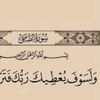 سُورَةُ الضُّحَىٰ
بِسْمِ اللَّهِ الرَّحْمَٰنِ الرَّحِيمِ
وَلَسَوْفَ يُعْطِيكَ رَبُّكَ فَتَر